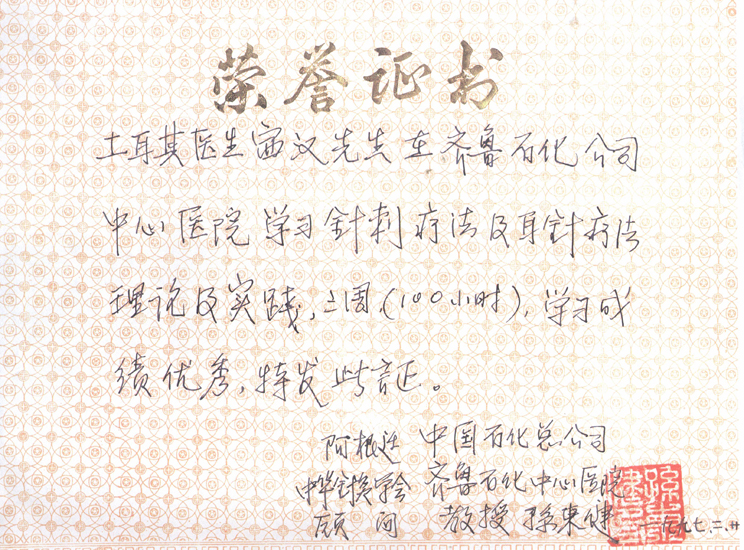 荣誉证书
土耳其医生密汉先生在齐鲁石化公司
中心医院学习針刺疗法及耳针疗法
理论及实践,二周,(100小时),学习成
绩优秀,特发此証。
阿根廷 中国石化总公司
中华針灸学会 齐鲁石化中心医院
顾问 教授 孙东健 一九九七.二.廿